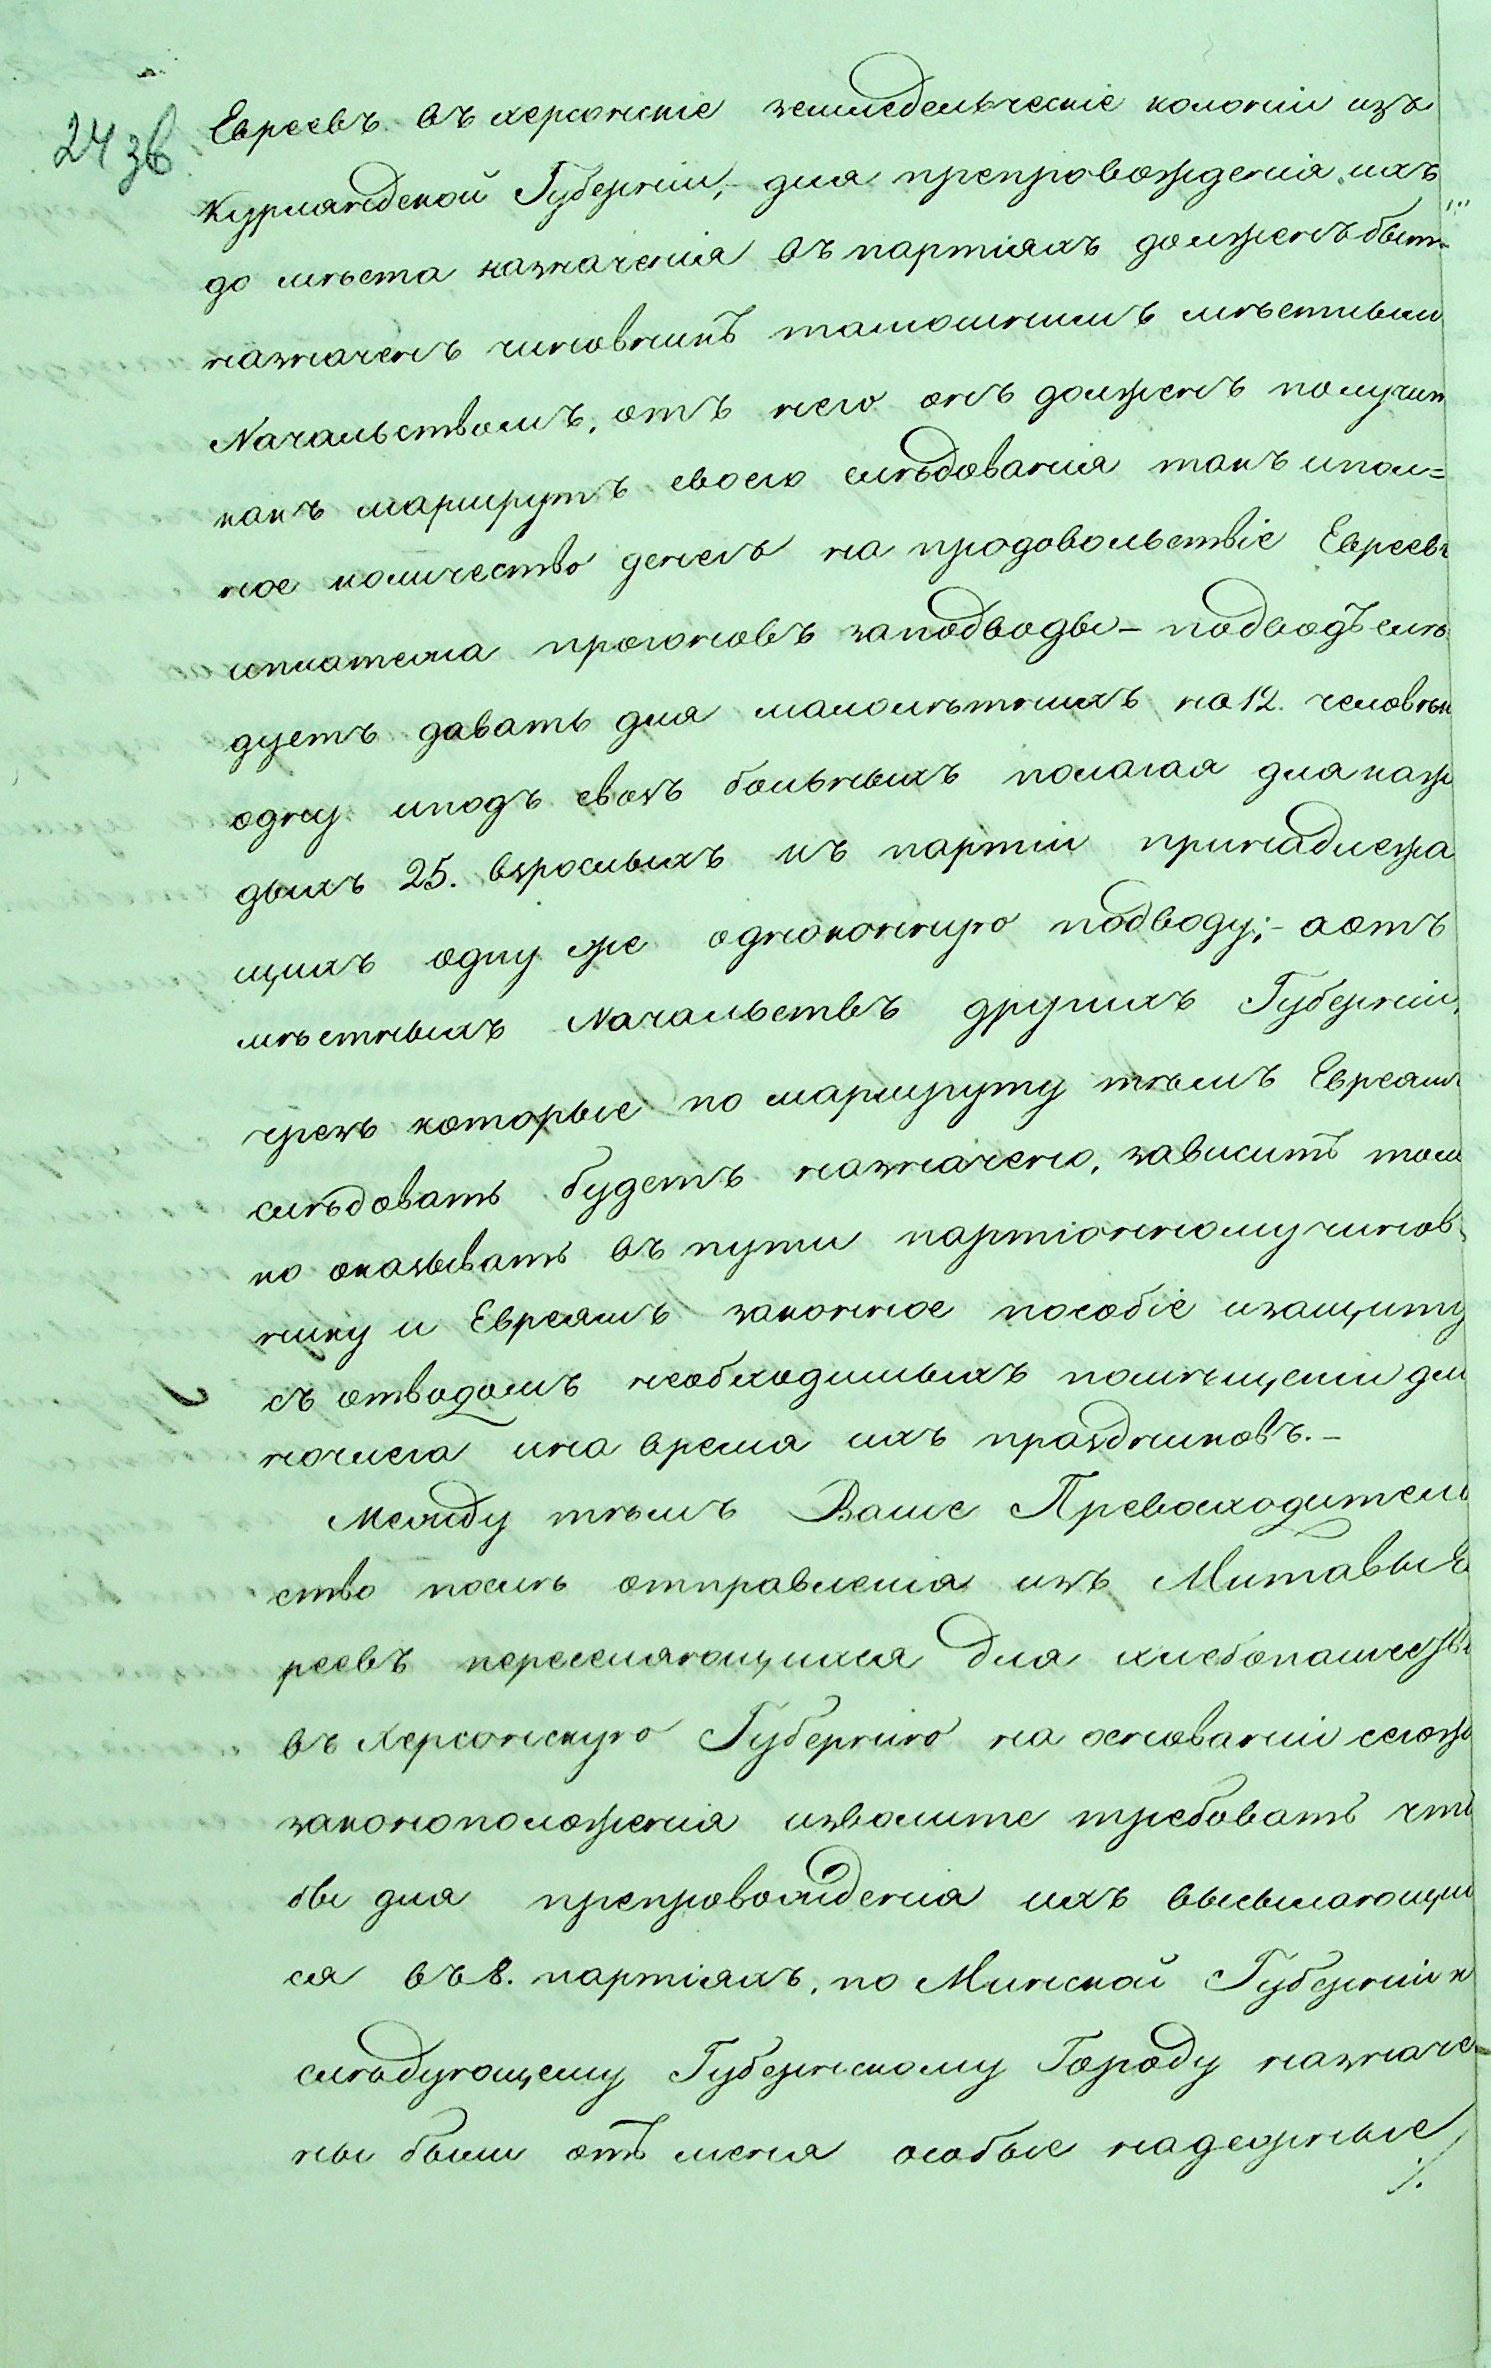 24 зв.
Евреевъ въ херсонскіе земледельческіе колоніи изъ
Курляндской Губерніи, - для препровожденія ихъ
до мѣста назначенія въ партіяхъ долженъ быть
назначенъ чиновникъ тамошнимъ мѣстнымъ
Начальствомъ, отъ него онъ долженъ получить
какъ маршрутъ своего слѣдованія такъ и пол=
ное количество денегъ на продовольствіе Евреевъ
и платежа прогоновъ за подводы - подводъ слѣ
дуетъ давать для малолѣтнихъ на 12. человѣкъ
одну и подъ свозъ больныхъ полагая для каж
дыхъ 25. взрослыхъ къ партіи принадлежа
щихъ одну же одноконную подводу; - а отъ
мѣстныхъ Начальствъ другихъ Губерній,
чрезъ которые по маршруту тѣмъ Евреямъ
слѣдовать будетъ назначено, зависитъ толь
ко оказывать въ пути партіонному чинов
нику и Евреямъ законное пособіе и защиту
съ отводомъ необходимыхъ помѣщеній для
ночлега и на время ихъ праздниковъ. -
Между тѣмъ Ваше Превосходитель
ство послѣ отправленія изъ Митавы Ев
реевъ переселяющихся для хлебопашества
въ Херсонскую Губернію на основаніи сегожъ
законоположенія изволите требовать что
бы для препровожденія ихъ высылающих
ся въ 8. партіяхъ, по Минской Губерніи к
слѣдующему Губернскому Городу назначе-
ны были отъ меня особые надежные